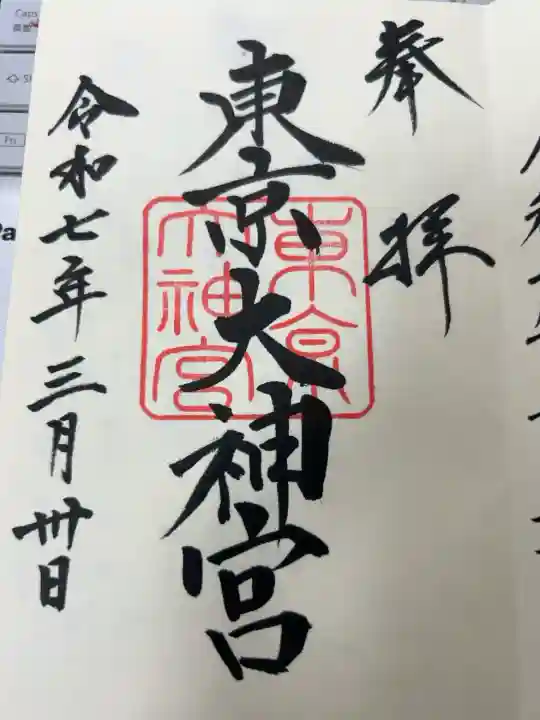 奉拝
東京大神宮
東京
大神宮
令和七年三月卅日
Caps
Fn
Pa